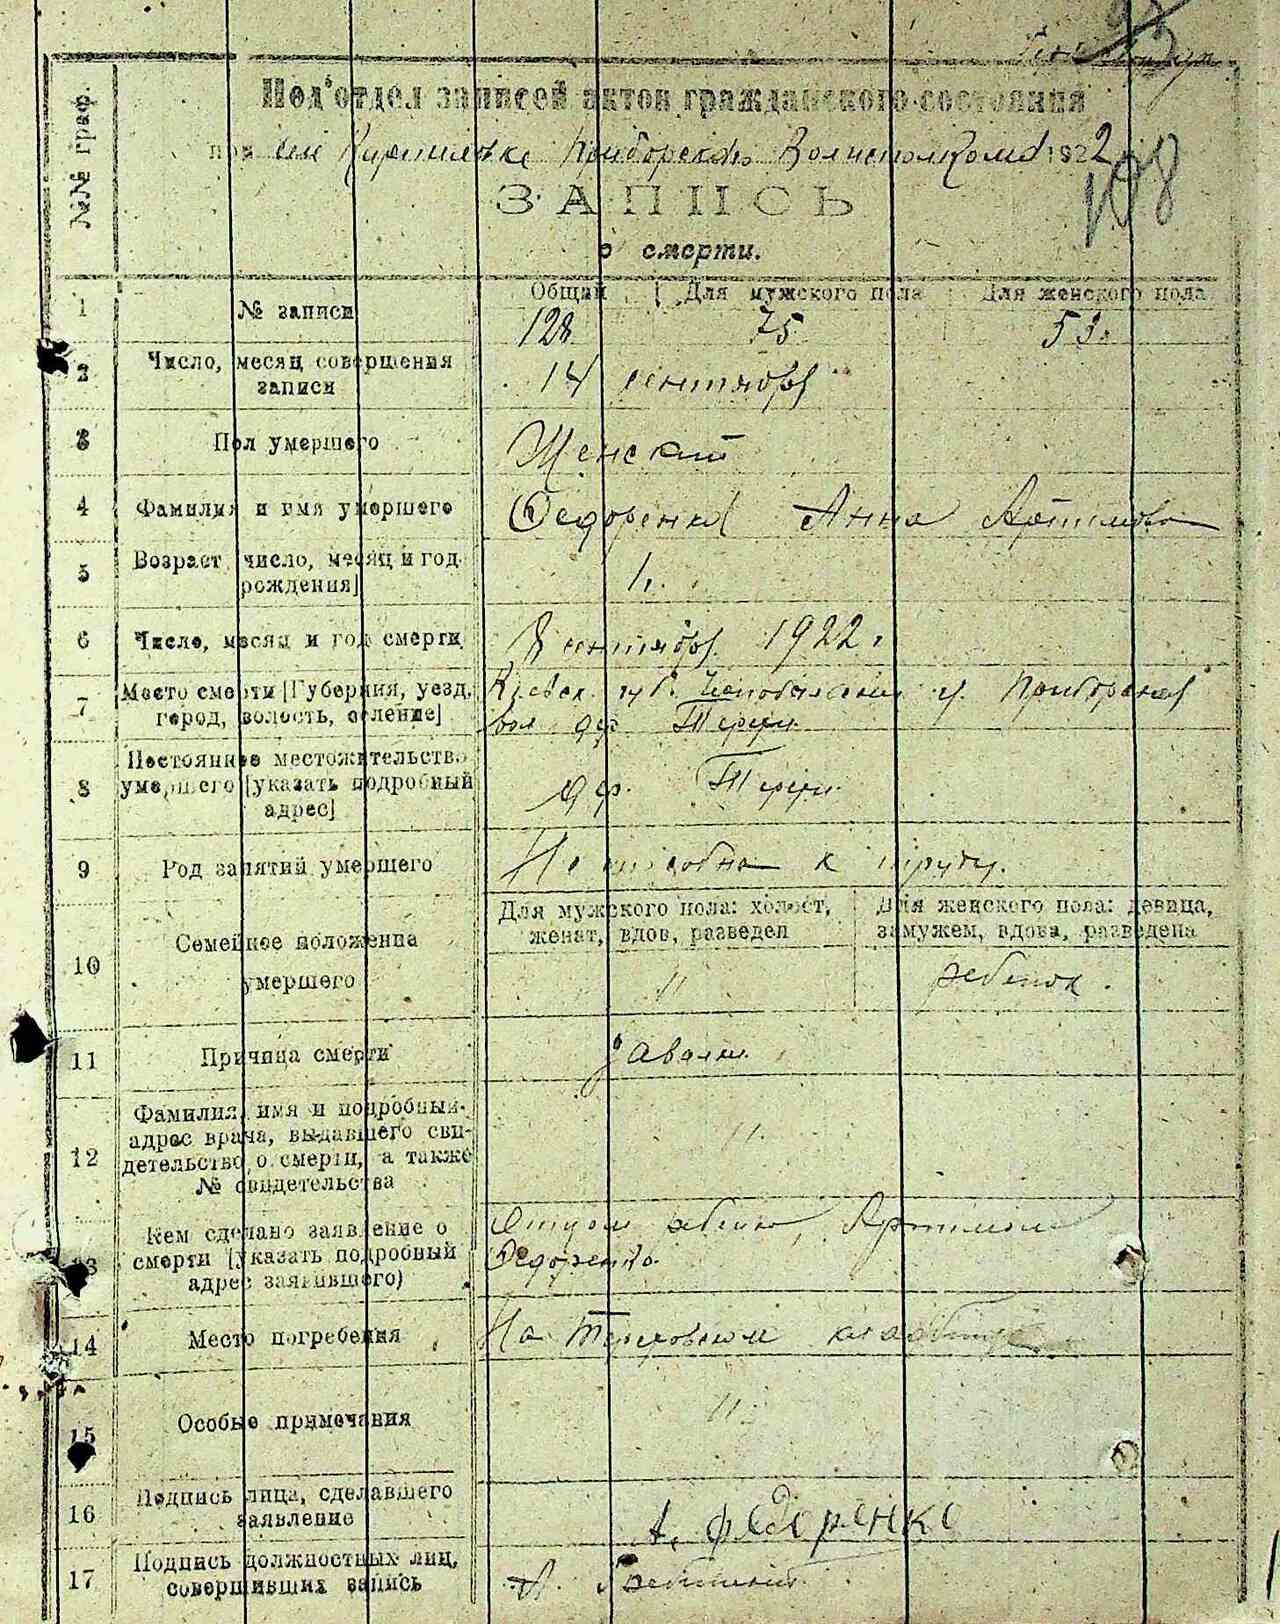 №№ граф.
Под'отдел записей актов гражданского состояния
при Приборском 1922
108
ЗАПИСЬ
о смерти.
1 № записи Общий Для мужского пола Для женского пола
128 75 53.
2 Число, месяц совершения записи
14 сентября
3 Пол умершего
Женский
4 Фамилия и имя умершего
Федоренко Анна Артимова
5 Возраст число, месяц и год рождения]
1.
6 Число, месяц и год смерти
8 сентября 1922.
7 Место смерти [Губерния, уезд, город, волость, селение]
Киевск. губ. у. Приборская
вол дер
8 Постоянное местожительство умершего [указать подробный адрес]
дер.
9 Род занятий умершего
Не способна к труду.
10 Семейное положение умершего
Для мужского пола: холост, женат, вдов, разведен
Для женского пола: девица, замужем, вдова, разведена
" ребенок.
11 Причина смерти
12 Фамилия, имя и подробный адрес врача, выдавшего свидетельство о смерти, а также № свидетельства
"
13 Кем сделано заявление о смерти [указать подробный адрес заявившего)
Отцом Артимом
Федоренко
14 Место погребения
На кладбище
15 Особые примечания
"
16 Подпись лица, сделавшего заявление
А. Федоренко
17 Подпись должностных лиц, совершивших запись